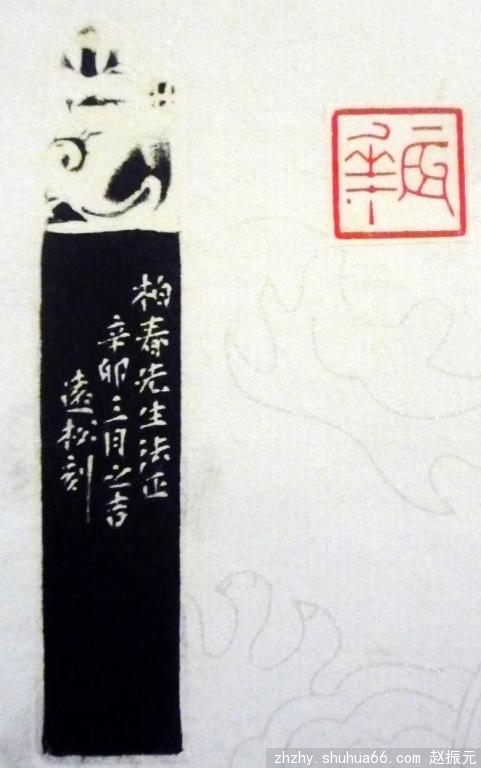 柏春先生法正
辛卯三月之吉
遠松刻
zhzhy.shuhua66.com 赵振元